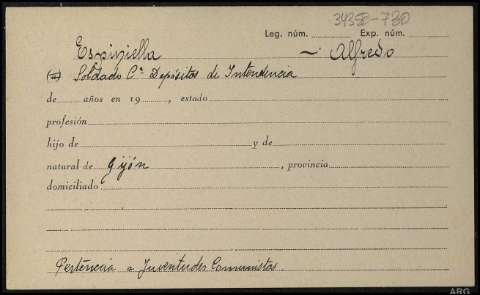 34352-730
Leg. núm. Exp. núm.
Espiniella ~ Alfredo
(a) Soldado Cª Depósitos de Intendencia
de años en 19 , estado
profesión
hijo de y de
natural de Gijón , provincia
domiciliado
Pertenencia a Juventudes Comunistas.
ARG